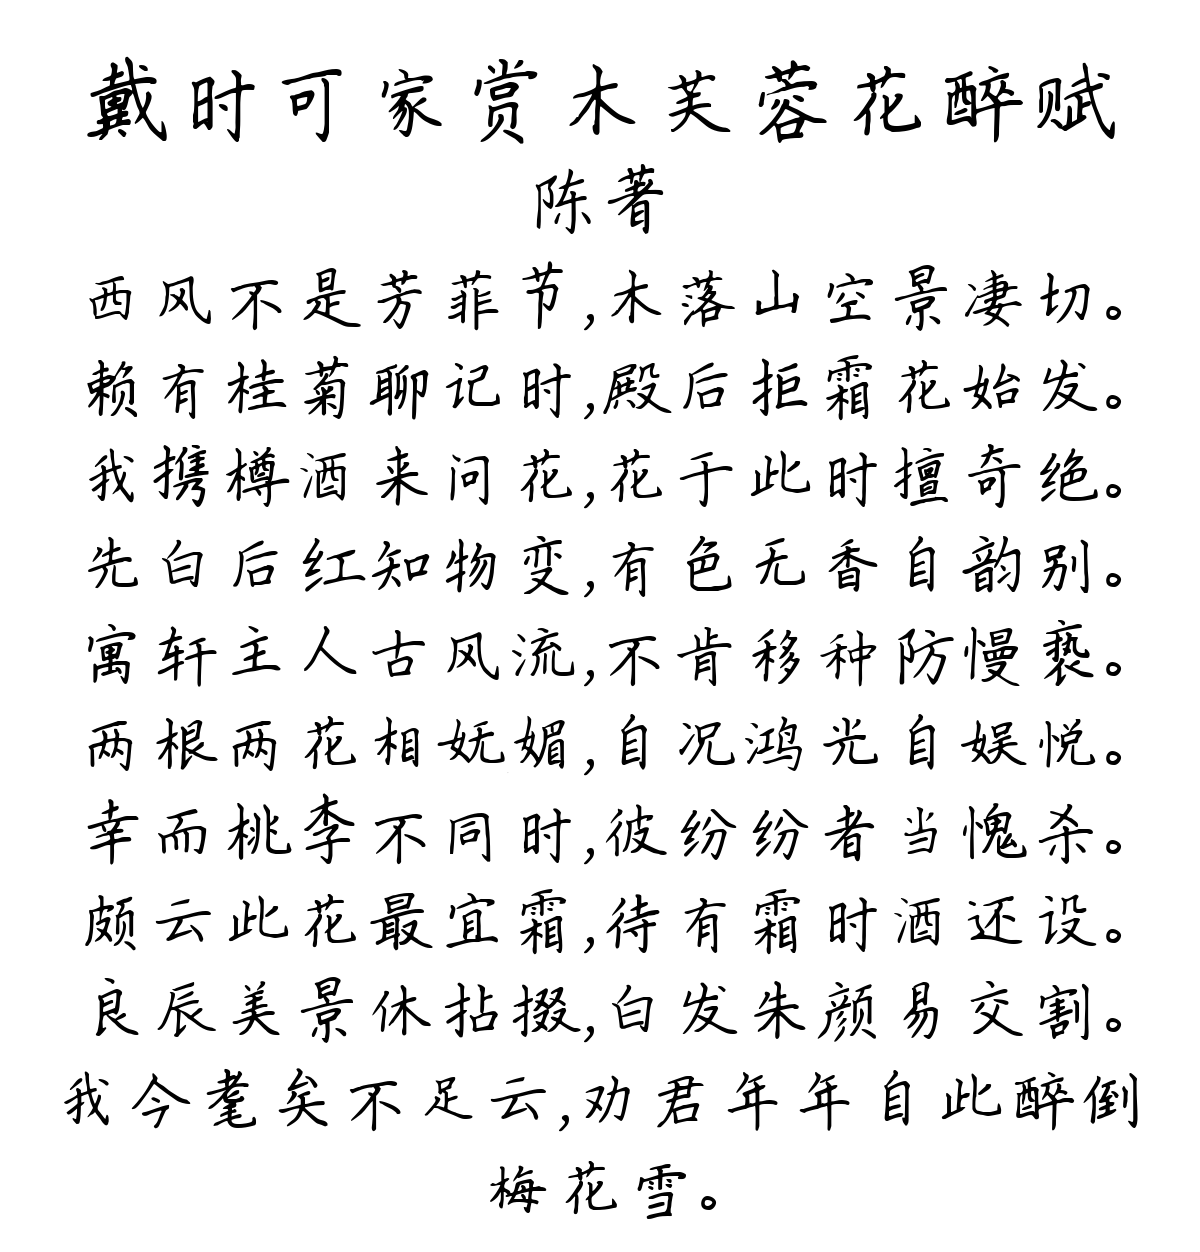 戴时可家赏木芙蓉花醉赋
陈著
西风不是芳菲节,木落山空景凄切。
赖有桂菊聊记时,殿后拒霜花始发。
我携樽酒来问花,花于此时擅奇绝。
先白后红知物变,有色无香自韵别。
寓轩主人古风流,不肯移种防慢亵。
两根两花相妩媚,自况鸿光自娱悦。
幸而桃李不同时,彼纷纷者当愧杀。
颇云此花最宜霜,待有霜时酒还设。
良辰美景休拈掇,白发朱颜易交割。
我今耄矣不足云,劝君年年自此醉倒
梅花雪。